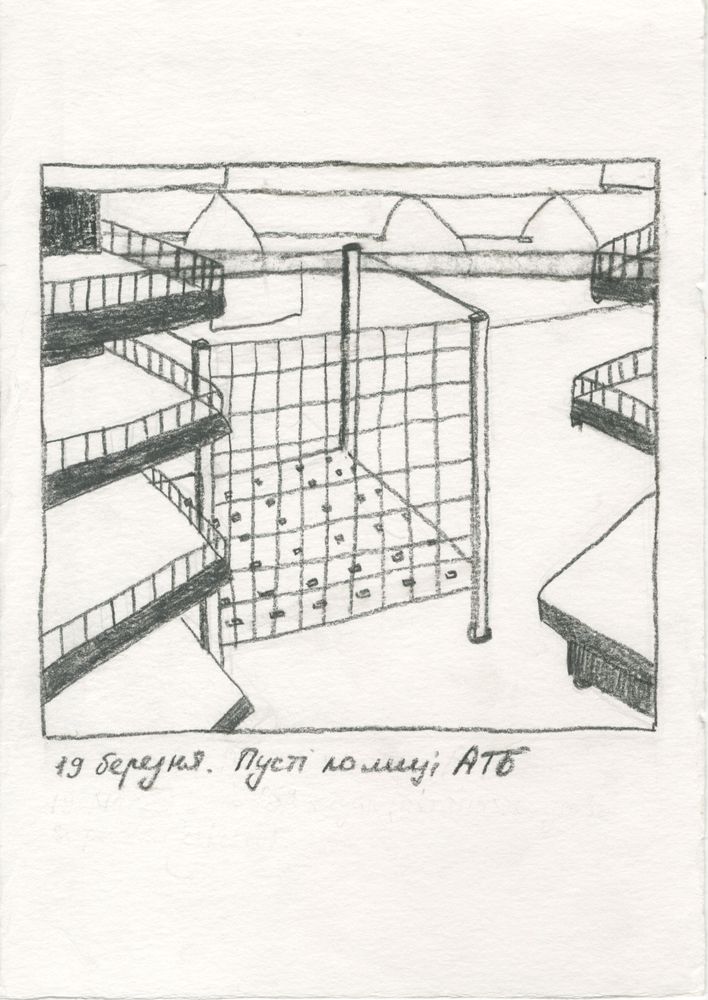 19 березня. Пусті полиці АТБ